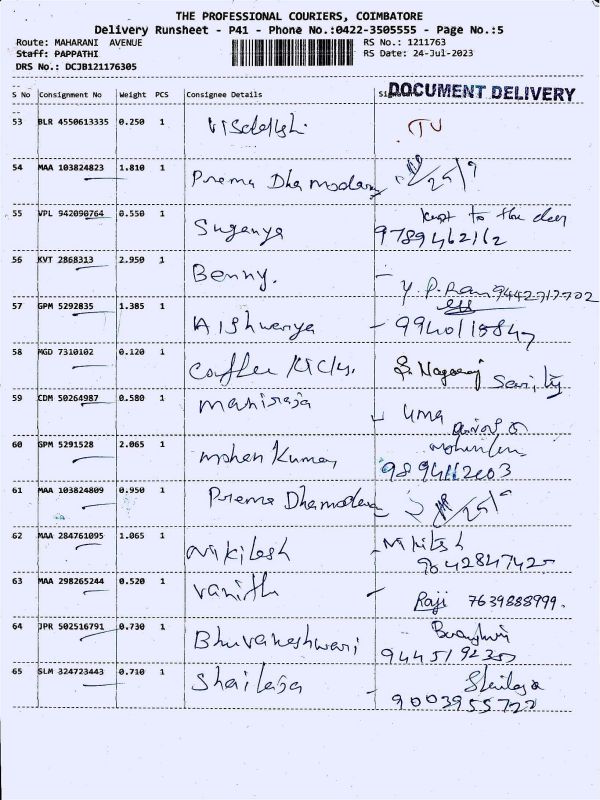 THE PROFESSIONAL COURIERS, COIMBATORE
Delivery Runsheet - P41 - Phone No.:0422-3505555 - Page No.:5
Route: MAHARANI AVENUE RS No.: 1211763
Staff: PAPPATHI RS Date: 24-Jul-2023
DRS No.: DCJB121176305
S No Consignment No Weight PCS Consignee Details
DOCUMENT DELIVERY
53 BLR 4550613335 0.250 1
54 MAA 103824823 1.810 1 Prema Dhamodaran
55 VPL 942090764 0.550 1 Suganya kept to the door
9789462162
56 KVT 2868313 2.950 1 Benny.
Y. P. Ram 9442717702
57 GPM 5292835 1.385 1 Aishwarya - 9940118847
58 MGD 7310102 0.120 1 Coffee S. Nagaraj
59 CDM 50264987 0.580 1 maniraja Uma
60 GPM 5291528 2.065 1 mohan Kumar
9894112003
61 MAA 103824809 0.950 1 Prema Dhamodaran
62 MAA 284761095 1.065 1 nikilesh Nikilesh
9642847425
63 MAA 298265244 0.520 1 Vanitha Raji 7639888999.
64 JPR 502516791 0.730 1 Bhuvaneshwari
9445192357
65 SLM 324723443 0.710 1 Shailaja Shailaja
9003955722